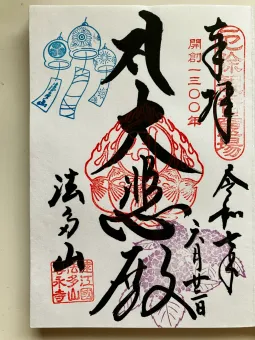 奉拝
開創一三〇〇年
令和七年
六月廿一日
大悲殿
法多山
遠江國
法多山
尊永寺